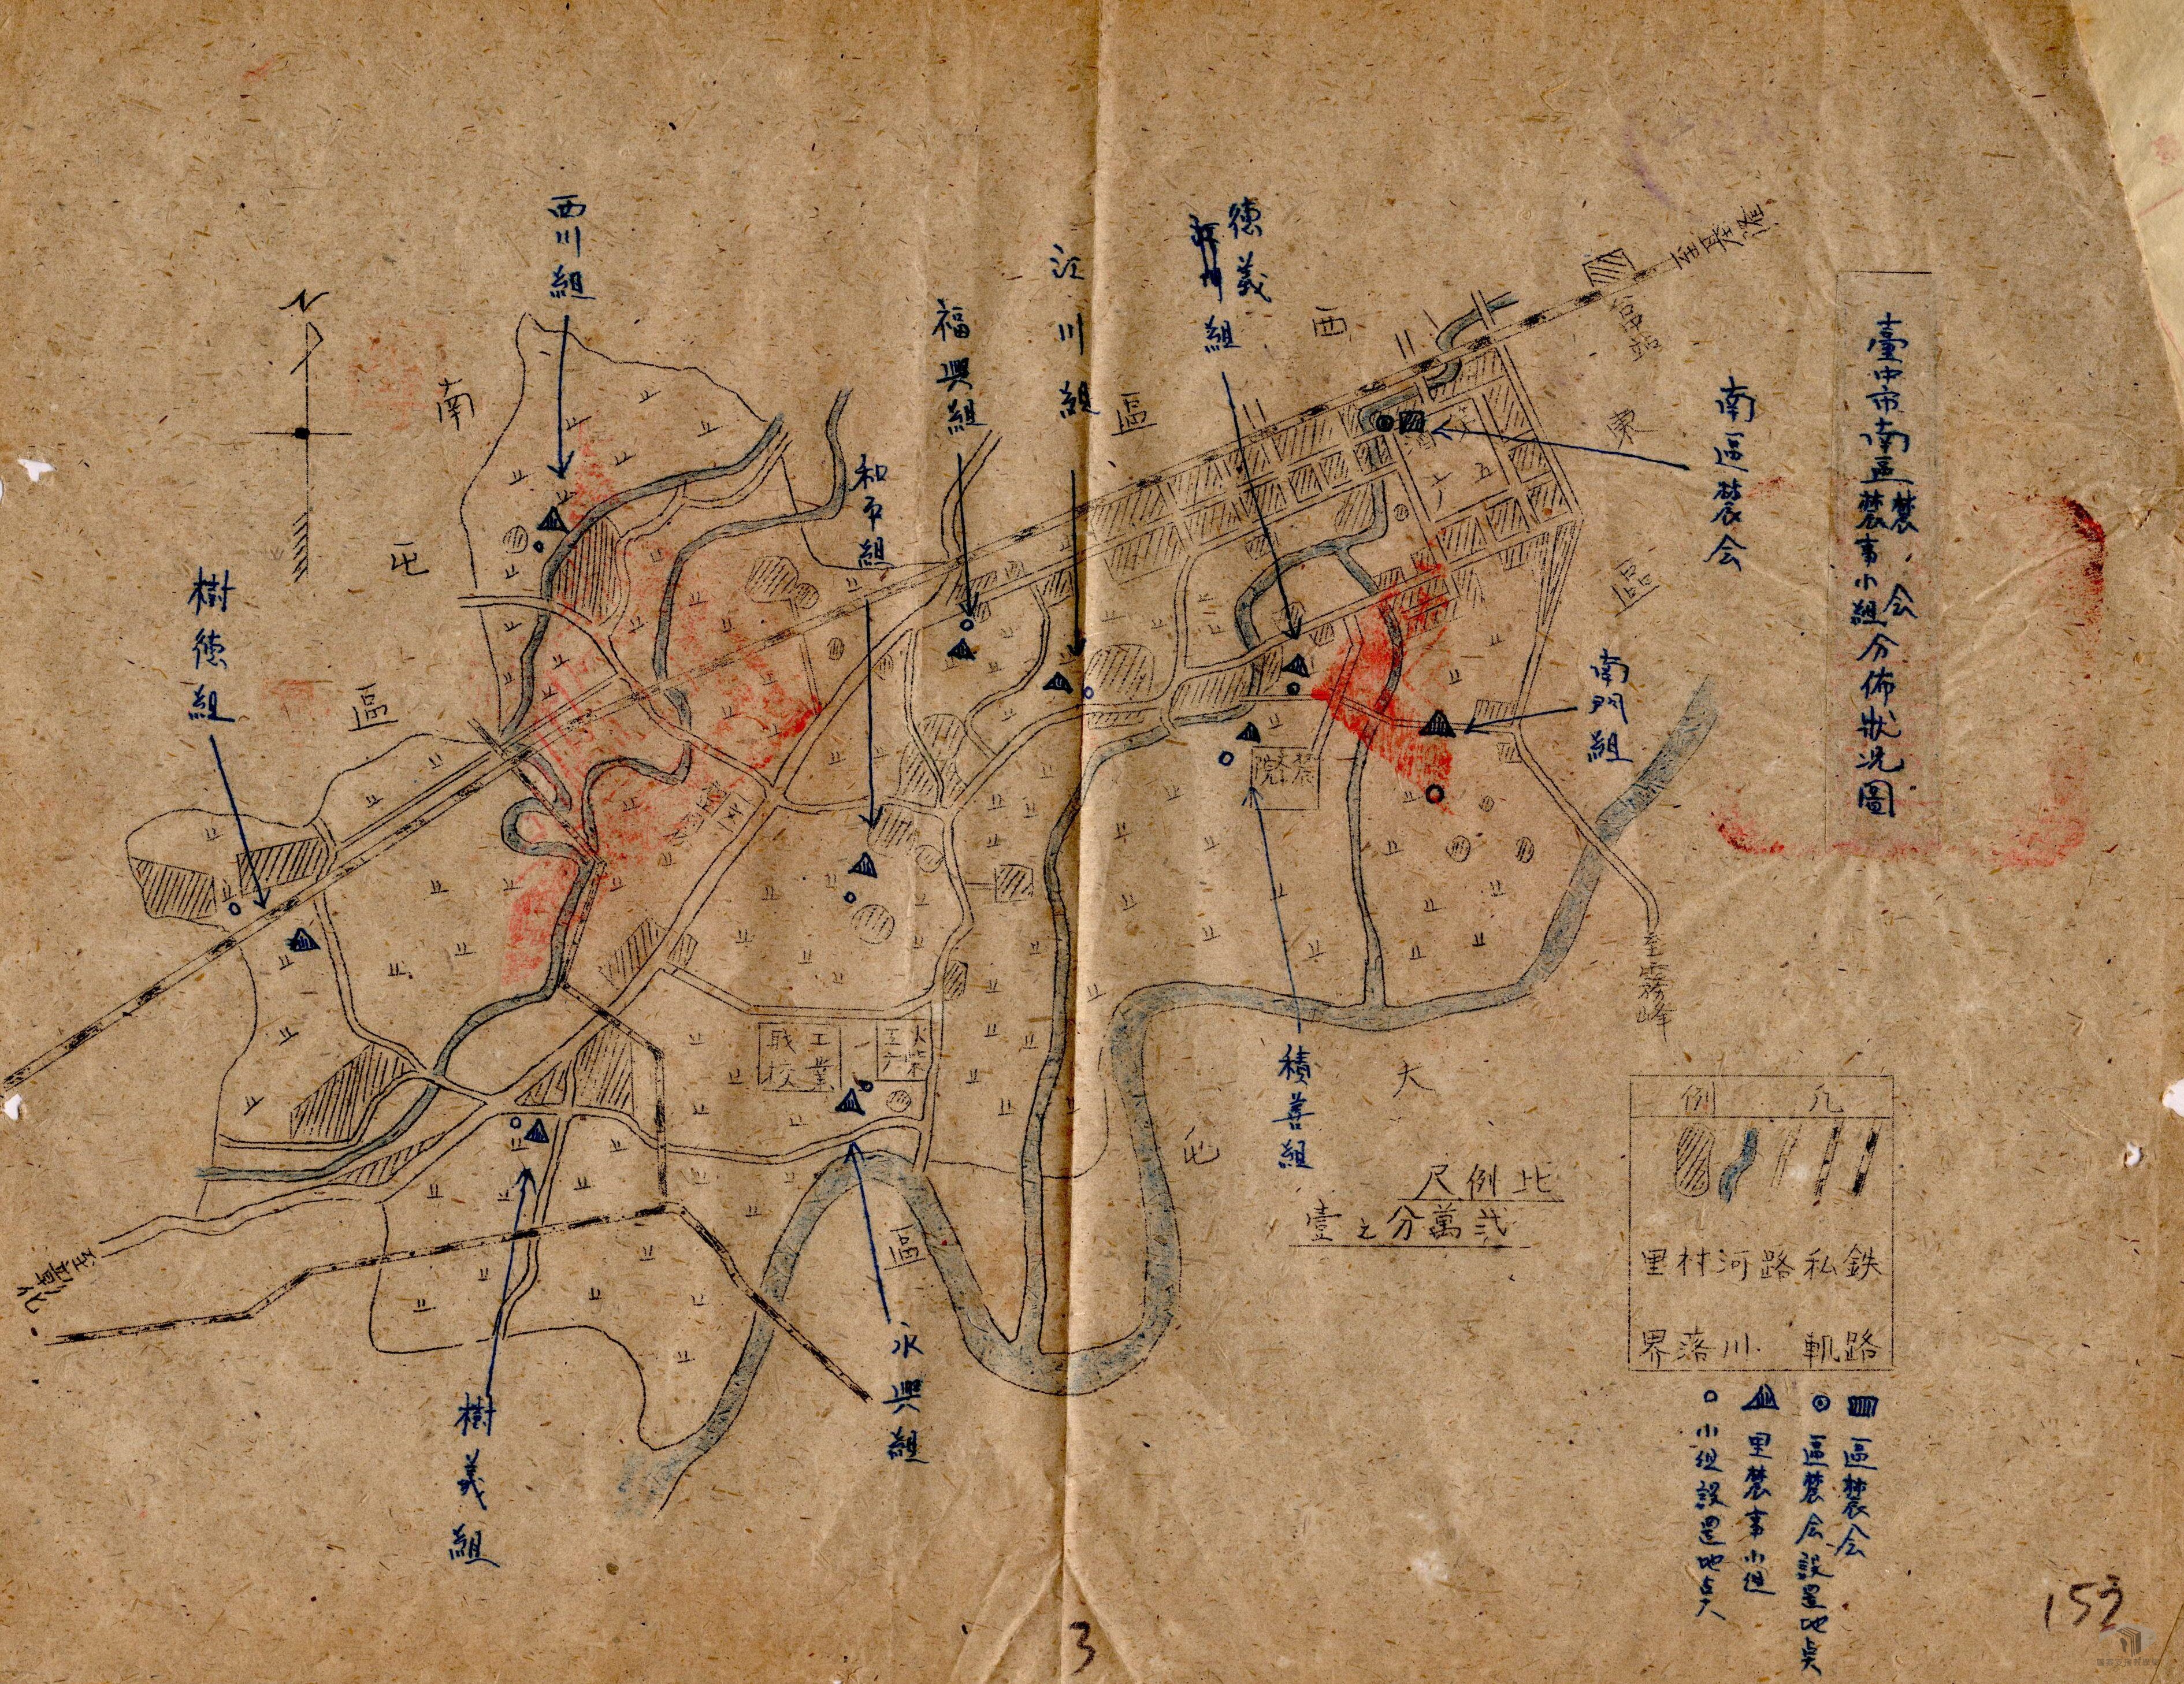 臺中市南區農会
農事小組分佈狀況圖
南區農会
南門組
德義組
江川組
福興組
和平組
西川組
樹德組
樹義組
永興組
積善組
N
南
屯
區
西
區
東
區
大
屯
區
台中站
至霧峰
至彰化
農學院
工業
職校
火柴
比例尺
弍萬分之壹
凡例
鉄路
私軌
路
河川
村落
里界
區農会
區農会設置地点
里農事小組
小組設置地点
3
152